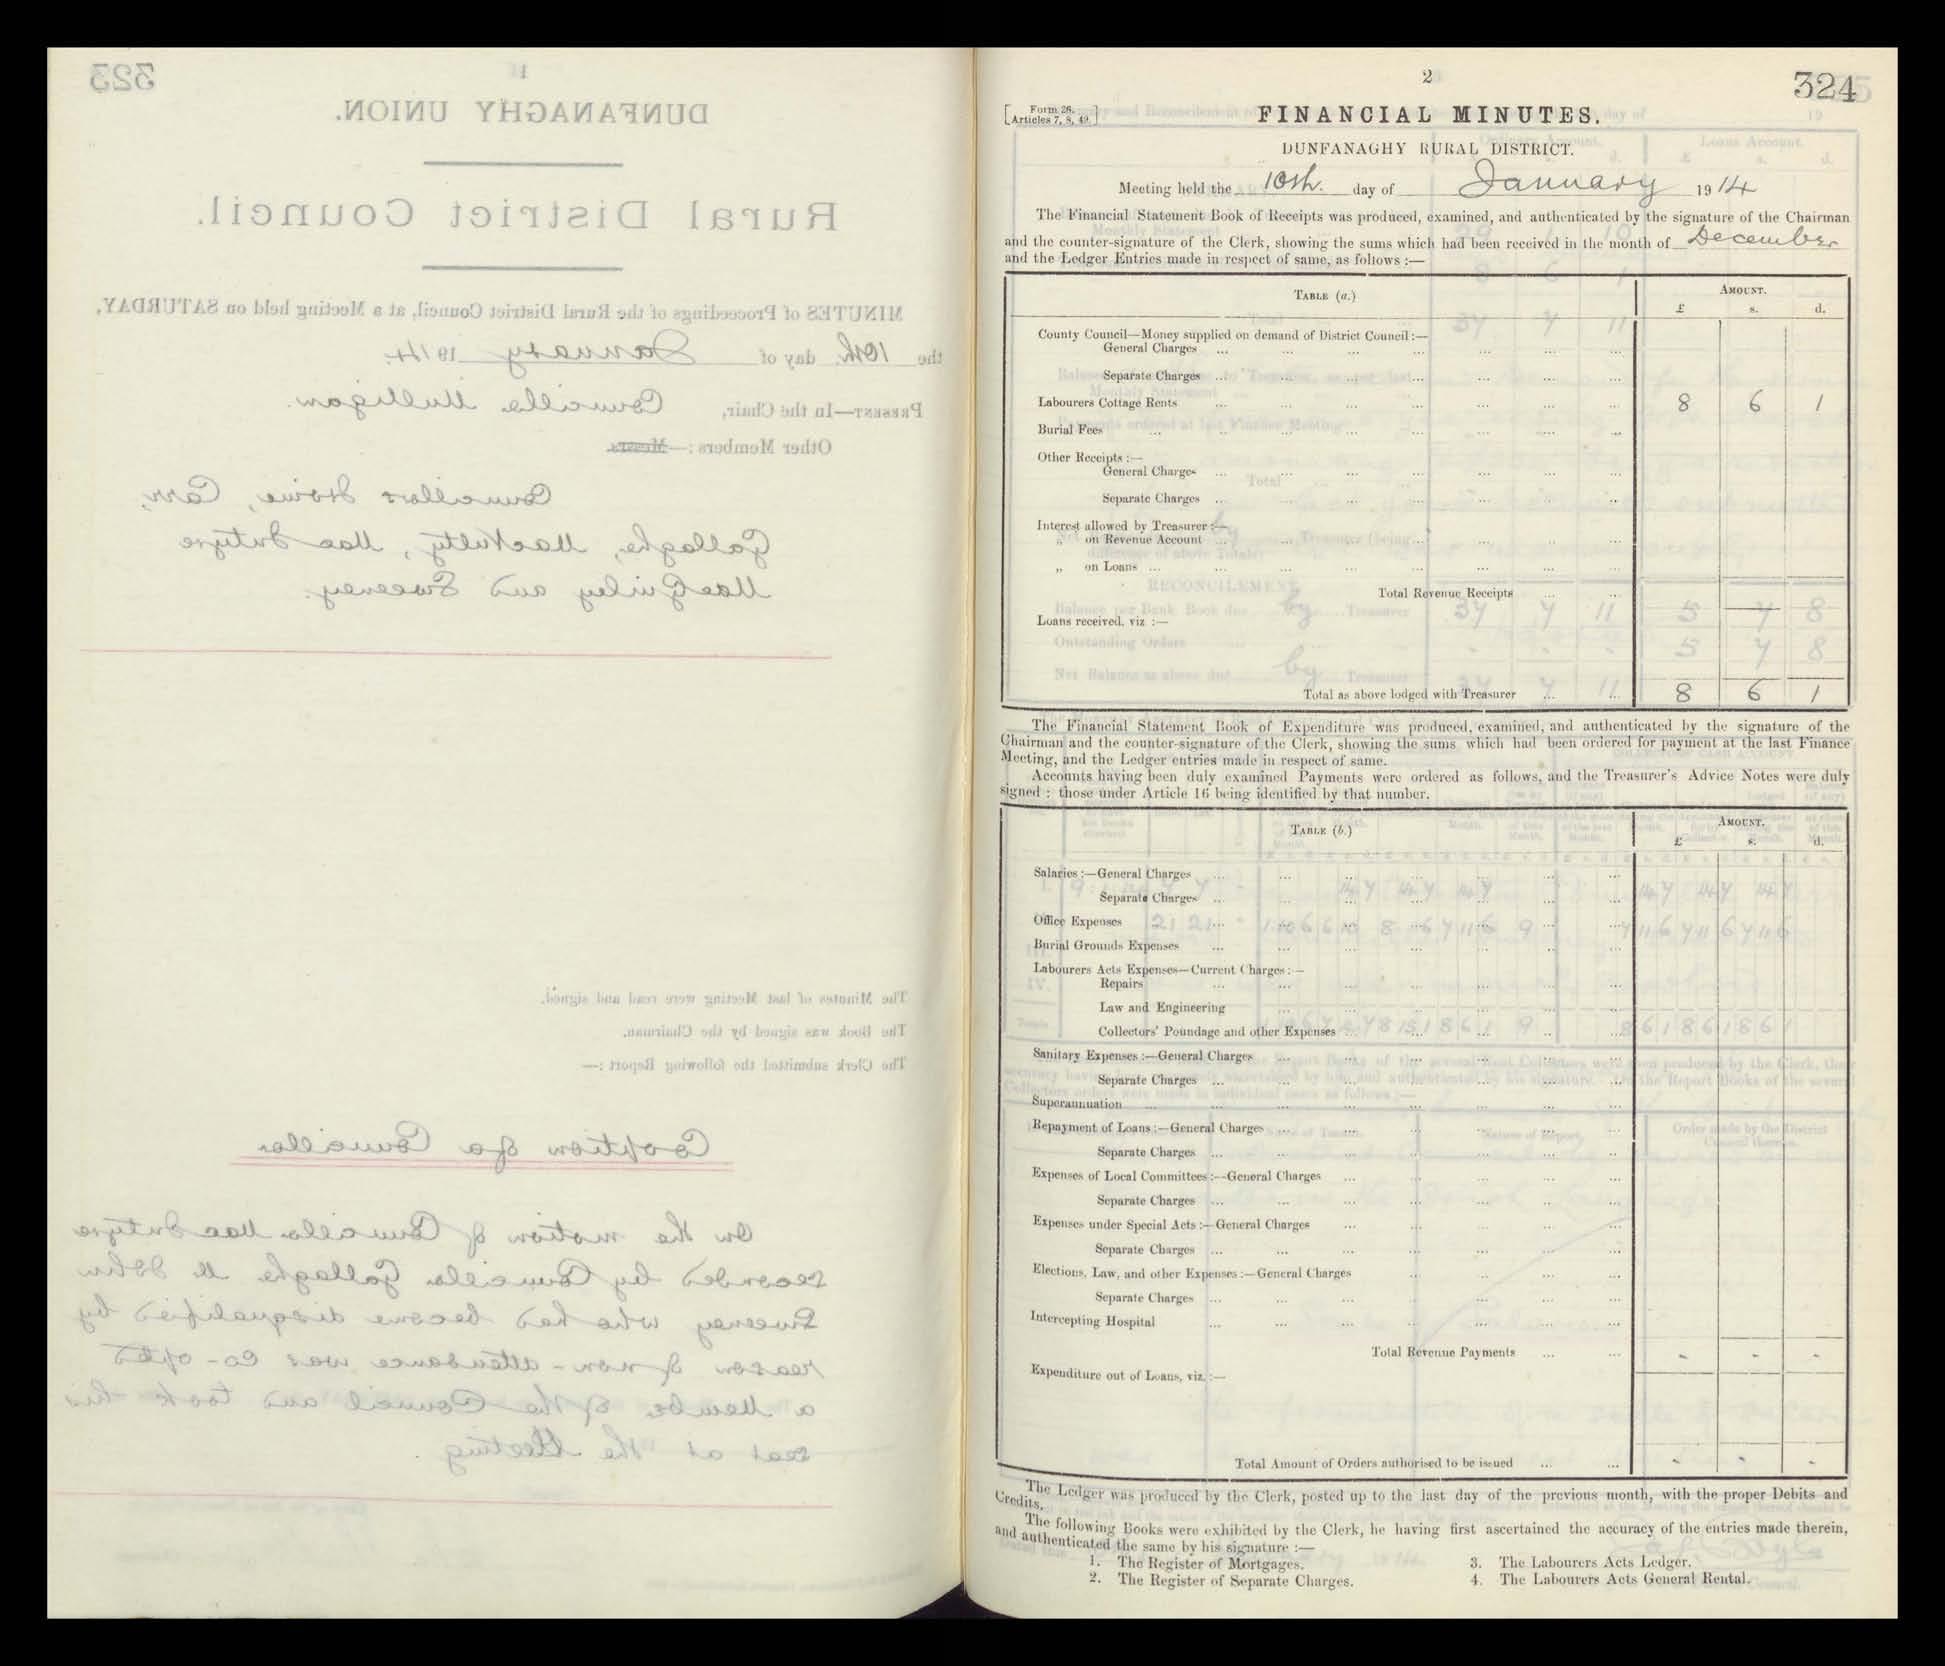 323
1
DUNFANAGHY UNION.
Rural District Council.
MINUTES of Proceedings of the Rural District Council, at a Meeting held on SATURDAY,
the 10th. day of January 1914.
PRESENT—In the Chair, Councillor Mulligan.
Other Members:—Messrs
Councillors Irvine, Carr,
Gallagher, MacNulty, MacIntyre
MacGinley and Sweeney.
The Minutes of last Meeting were read and signed.
The Book was signed by the Chairman.
The Clerk submitted the following Report:—
Cooption of a Councillor
On the motion of Councillor MacIntyre
seconded by Councillor Gallagher Mr John
Sweeney who has become disqualified by
reason of non-attendance was co-opted
a Member of the Council and took his
seat at the Meeting.
2
324
[Form 26. Articles 7, 8, 49.]
FINANCIAL MINUTES.
DUNFANAGHY RURAL DISTRICT.
Meeting held the 10th. day of January 1914
The Financial Statement Book of Receipts was produced, examined, and authenticated by the signature of the Chairman
and the counter-signature of the Clerk, showing the sums which had been received in the month of December
and the Ledger Entries made in respect of same, as follows :—
TABLE (a.) AMOUNT.
£ s. d.
County Council—Money supplied on demand of District Council :—
General Charges ... ... ... ... ... ... ...
Separate Charges ... ... ... ... ... ... ...
Labourers Cottage Rents ... ... ... ... ... ... ... 8 6 1
Burial Fees ... ... ... ... ... ... ... ...
Other Receipts :—
General Charges ... ... ... ... ... ... ...
Separate Charges ... ... ... ... ... ... ...
Interest allowed by Treasurer :—
„ on Revenue Account ... ... ... ... ... ... ...
„ on Loans ... ... ... ... ... ... ... ...
Total Revenue Receipts ... ...
Loans received, viz :—
Total as above lodged with Treasurer ... ... 8 6 1
The Financial Statement Book of Expenditure was produced, examined, and authenticated by the signature of the
Chairman and the counter-signature of the Clerk, showing the sums which had been ordered for payment at the last Finance
Meeting, and the Ledger entries made in respect of same.
Accounts having been duly examined Payments were ordered as follows, and the Treasurer's Advice Notes were duly
signed : those under Article 16 being identified by that number.
TABLE (b.) AMOUNT.
£ s. d.
Salaries :—General Charges ... ... ... ... ... ... ...
Separate Charges ... ... ... ... ... ... ...
Office Expenses ... ... ... ... ... ... ...
Burial Grounds Expenses ... ... ... ... ... ... ...
Labourers Acts Expenses—Current Charges :—
Repairs ... ... ... ... ... ... ...
Law and Engineering ... ... ... ... ... ...
Collectors' Poundage and other Expenses ... ... ... ... ...
Sanitary Expenses :—General Charges ... ... ... ... ... ...
Separate Charges ... ... ... ... ... ... ...
Superannuation ... ... ... ... ... ... ... ...
Repayment of Loans :—General Charges ... ... ... ... ... ...
Separate Charges ... ... ... ... ... ... ...
Expenses of Local Committees :—General Charges ... ... ... ... ...
Separate Charges ... ... ... ... ... ... ...
Expenses under Special Acts :—General Charges ... ... ... ... ...
Separate Charges ... ... ... ... ... ... ...
Elections, Law, and other Expenses :—General Charges ... ... ... ...
Separate Charges ... ... ... ... ... ... ...
Intercepting Hospital ... ... ... ... ... ... ...
Total Revenue Payments ... ... - - -
Expenditure out of Loans, viz. :—
Total Amount of Orders authorised to be issued ... ... - - -
The Ledger was produced by the Clerk, posted up to the last day of the previous month, with the proper Debits and
Credits.
The following Books were exhibited by the Clerk, he having first ascertained the accuracy of the entries made therein,
and authenticated the same by his signature :—
1. The Register of Mortgages. 3. The Labourers Acts Ledger.
2. The Register of Separate Charges. 4. The Labourers Acts General Rental.